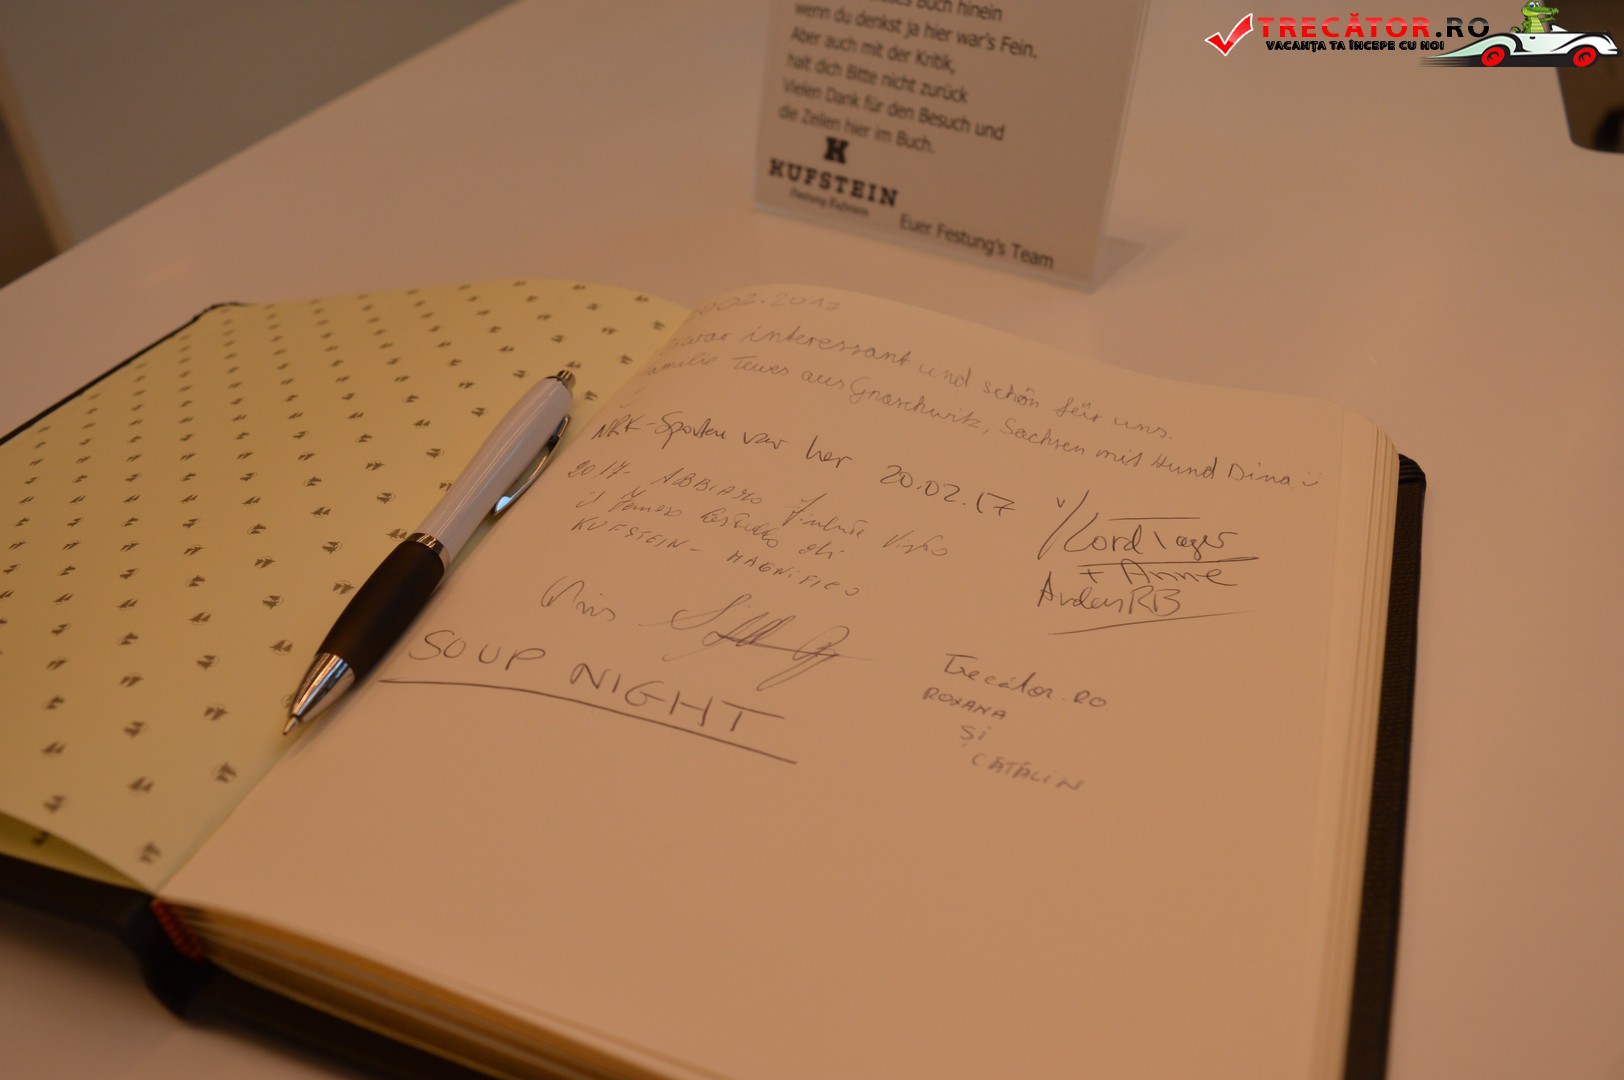 TRECĂTOR.RO
VACANȚA TA ÎNCEPE CU NOI
Buch hinein
wenn du denkst ja hier war's Fein.
Aber auch mit der Kritik,
halt dich Bitte nicht zurück
Vielen Dank für den Besuch und
die Zeilen hier im Buch.
K
KUFSTEIN
Festung Kufstein
Euer Festung's Team
02.2017
war interessant und schön für uns.
Familie Tewes aus Gnaschwitz, Sachsen mit Hund Dina
NRK-Sporten var her 20.02.17
v/
+ Anne
2017- ABBIAMO
il
KUFSTEIN - MAGNIFICO
SOUP NIGHT
Trecător.RO
ROXANA
ȘI
CĂTĂLIN